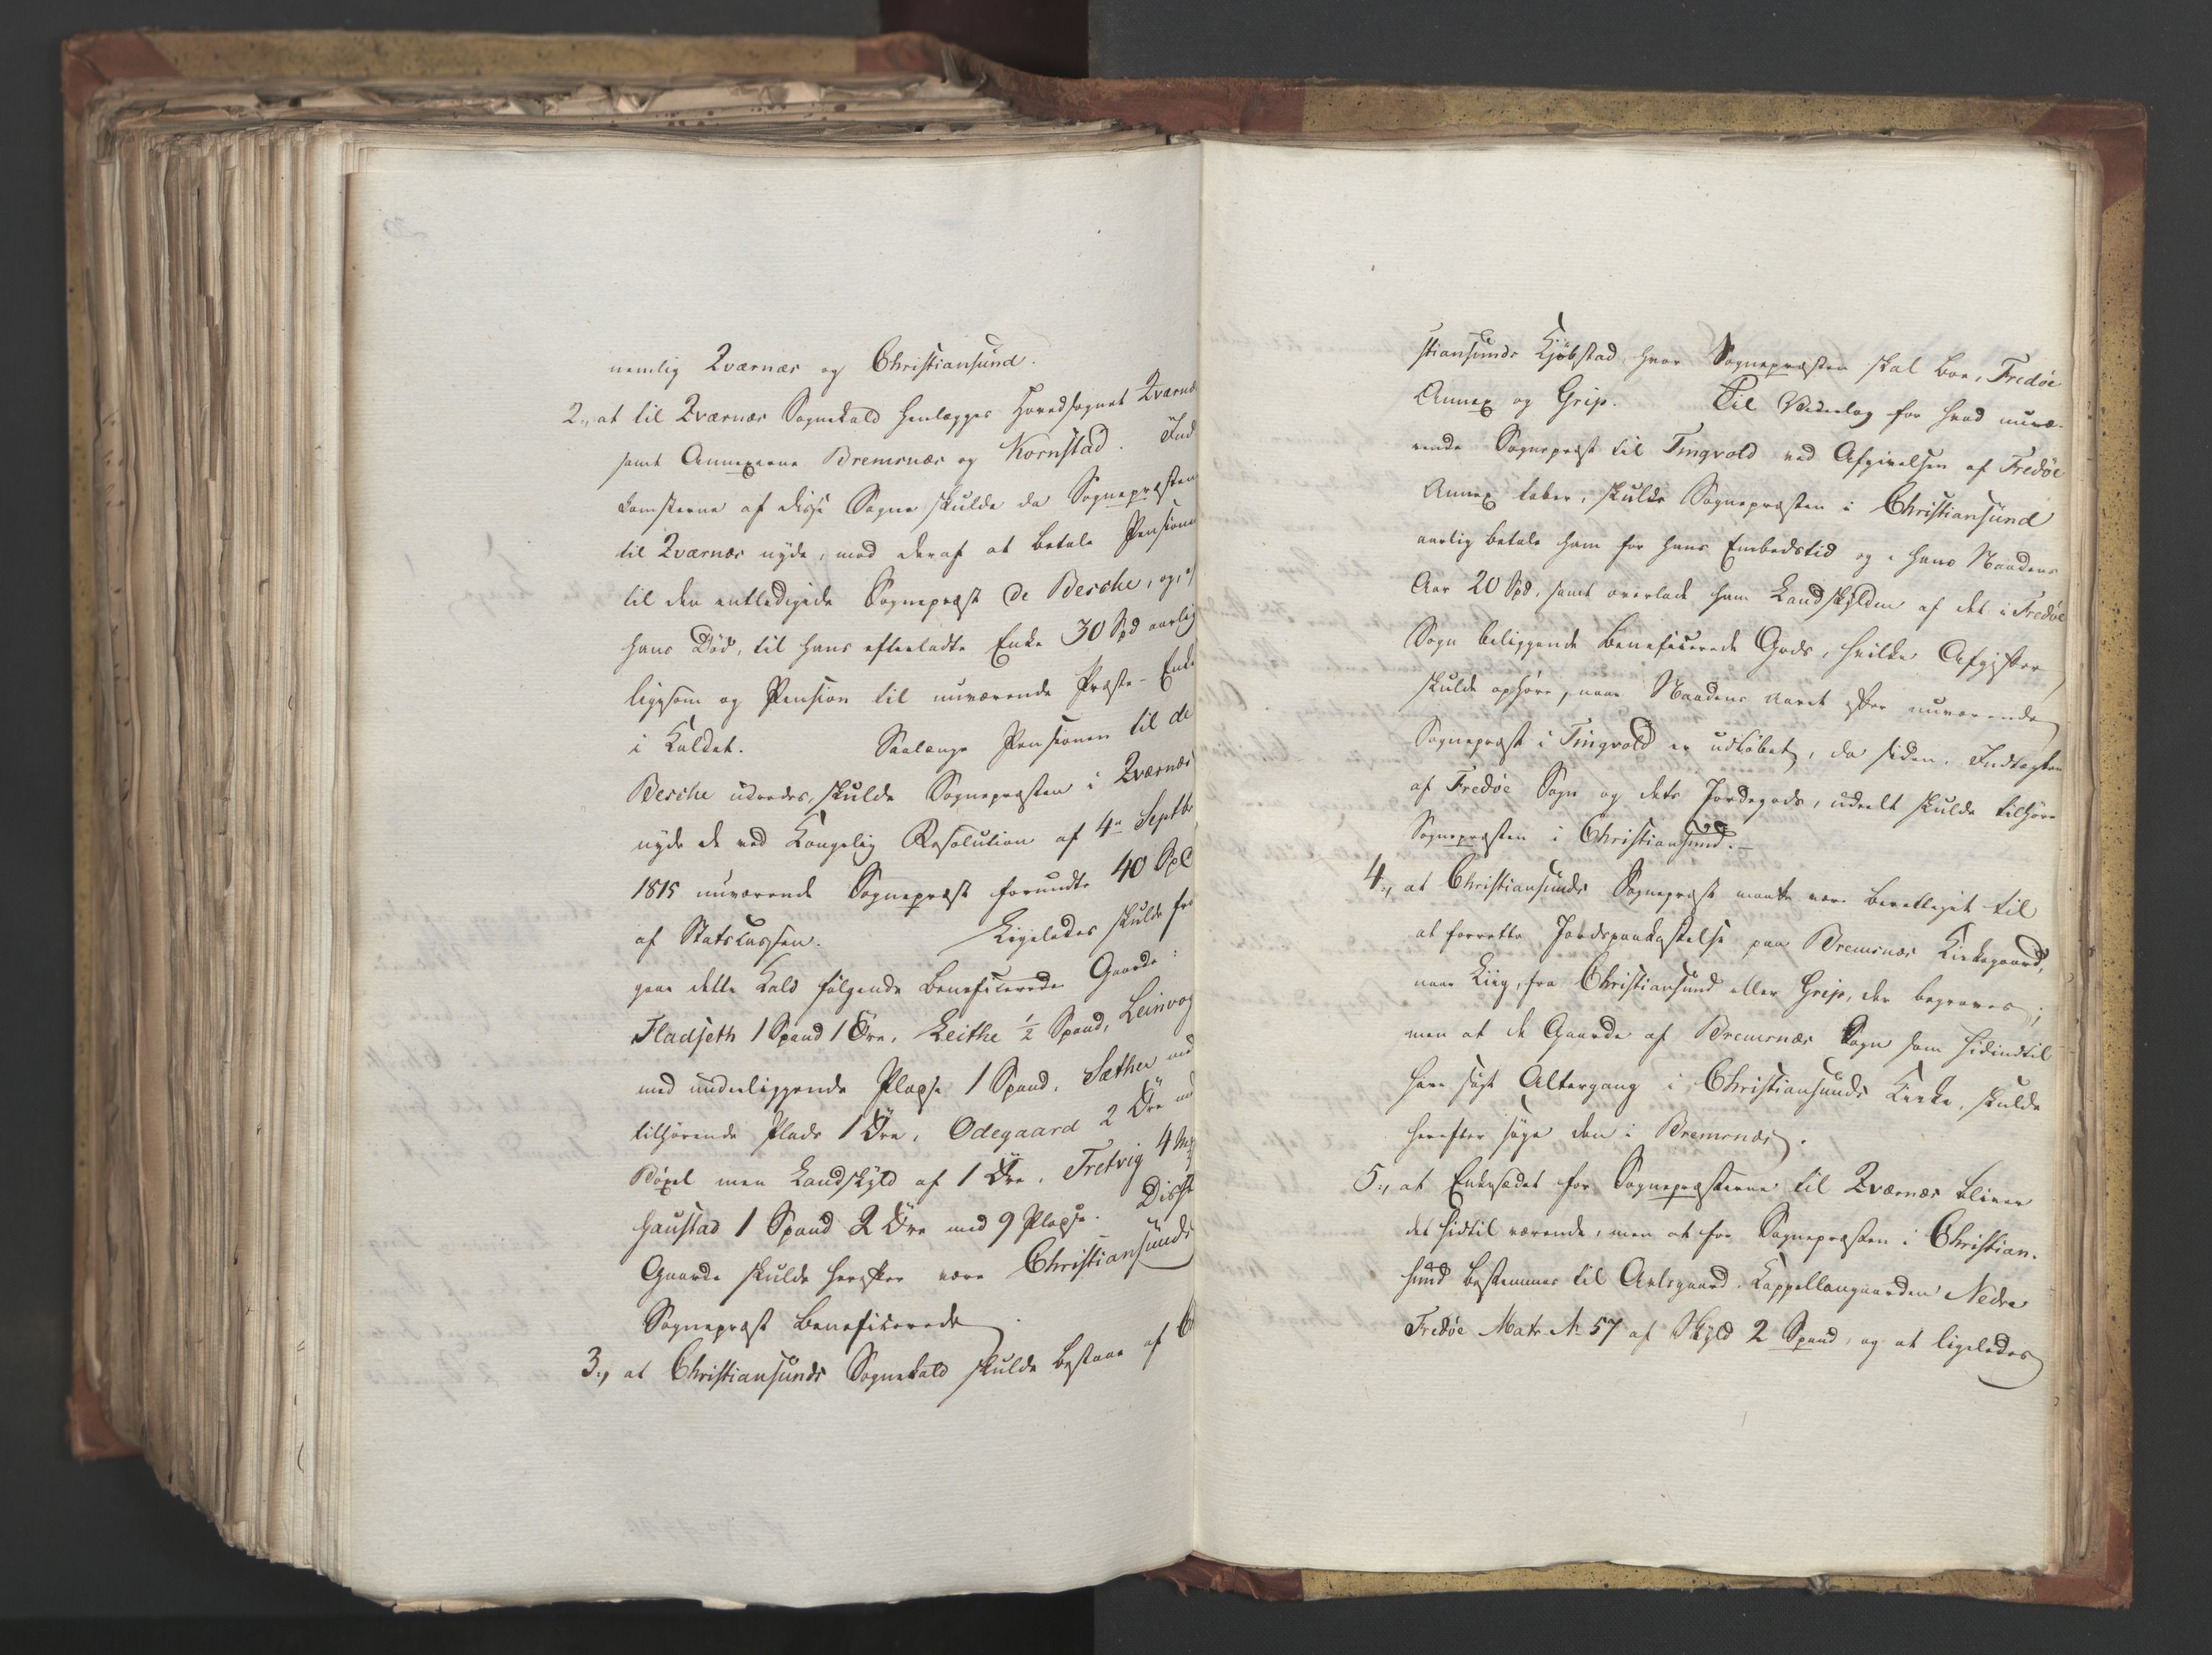 nemlig Qværnæs og Christiansund.
2., at til Qværnæs Sognekald henlægges Hovedsognet Qværnæs
samt Annexerne Bremsnæs og Kornstad. Ind
komsterne af disse Sogne skulde da Sognepræsten
til Qværnæs nyde, mod deraf at betale Pension
til den entledigede Sognepræst de Besche, og, ef
hans Død, til hans efterladte Enke 30 Spd aarlig
ligesom og Pension til nuværende Præste-Enke
i Kaldet. Saalænge Pensionen til de
Besche udredes, skulde Sognepræsten i Qværnæs
nyde de ved Kongelig Resolution af 4de Septbr
1815 nuværende Sognepræst forundte 40 Spd
af Statscassen. Ligeledes skulde fra
gaae dette Kald følgende beneficerede Gaarde:
Fladseth 1 Spand 1 Øre, Leithe ½ Spand, Leirvog
med underliggende Pladse 1 Spand, Sæther med
tilhørende Plads 1 Øre, Odegaard 2 Øre med
Bøxel men Landskyld af 1 Øre, Tretvig 4 Mk
Haustad 1 Spand 2 Øre med 9 Pladse. Disse
Gaarde skulde herefter være Christiansunds
Sognepræst beneficerede.
3., at Christiansunds Sognekald skulde bestaae af C
stiansunds Kjøbstad hvor Sognepræsten skal boe, Fredøe
Annex og Grip. Til Vederlag for hvad nuvæ-
rende Sognepræst til Tingvold ved Afgivelsen af Fredøe
Annex taber, skulde Sognepræsten i Christiansund
aarlig betale ham for hans Embedstid og i hans Naadens
Aar 20 Spd, samt overlade ham Landskylden af det i Fredøe
Sogn beliggende beneficerede Gods, hvilke Afgifter
skulde ophøre, naar Naadens Aaret efter nuværende
Sognepræst i Tingvold er udløbet, da siden Indtægten
af Fredøe Sogn og dets Jordegods, udeelt skulde tilhøre
Sognepræsten i Christiansund.-
4., at Christiansunds Sognepræst maatte være berettiget til
at forrette Jordspaakastelse paa Bremsnæs Kirkegaard,
naar Liig, fra Christiansund eller Grip, der begraves;
men at de Gaarde af Bremsnæs Sogn som hidindtil
have søgt Altergang i Christiansunds Kirke, skulde
herefter søge den i Bremsnæs.
5., at Enkesædet for Sognepræsterne til Qværnæs bliver
det hidtil værende, men at for Sognepræsten i Christian-
sund bestemmes til Avlsgaard, Kappellangaarden Nedre
Fredøe Matr. No 57 af Skyld 2 Spand, og at ligeledes